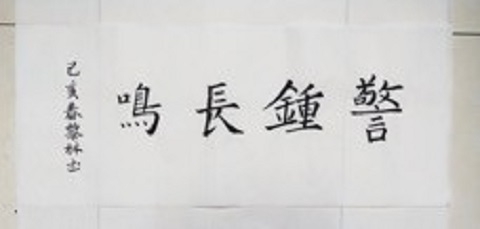 警鍾長鳴
己亥春黎林书